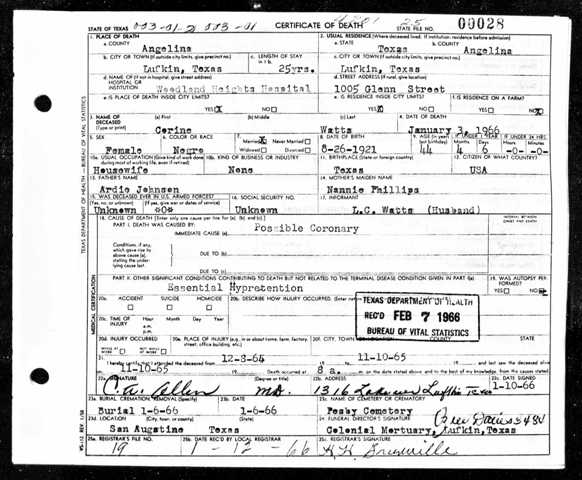 STATE OF TEXAS
CERTIFICATE OF DEATH
25
00028
STATE FILE NO.
1. PLACE OF DEATH
a. COUNTY
Angelina
2. USUAL RESIDENCE (Where deceased lived. If institution: residence before admission)
a. STATE
Texas
b. COUNTY
Angelina
b. CITY OR TOWN (If outside city limits, give precinct no.)
Lufkin, Texas
c. LENGTH OF STAY in 1 b.
25yrs.
c. CITY OR TOWN (If outside city limits, give precinct no.)
Lufkin, Texas
d. NAME OF (If not in hospital, give street address)
HOSPITAL OR INSTITUTION
Woodland Heights Hospital
d. STREET ADDRESS (If rural, give location)
1005 Glenn Street
e. IS PLACE OF DEATH INSIDE CITY LIMITS?
YES X NO
e. IS RESIDENCE INSIDE CITY LIMITS?
YES X NO
f. IS RESIDENCE ON A FARM?
YES NO X
3. NAME OF DECEASED (Type or print)
(a) First
Corine
(b) Middle
(c) Last
Watts
4. DATE OF DEATH
January 3, 1966
5. SEX
Female
6. COLOR OR RACE
Negro
7. Married X Never Married
Widowed Divorced
8. DATE OF BIRTH
8-26-1921
9. AGE (In years last birthday)
44
IF UNDER 1 YEAR
Months Days
4 6
IF UNDER 24 HRS.
Hours Min.
-0- -0-
10a. USUAL OCCUPATION (Give kind of work done during most of working life, even if retired)
Housewife
10b. KIND OF BUSINESS OR INDUSTRY
None
11. BIRTHPLACE (State or foreign country)
Texas
12. CITIZEN OF WHAT COUNTRY?
USA
13. FATHER'S NAME
Ardis Johnson
14. MOTHER'S MAIDEN NAME
Nannie Phillips
15. WAS DECEASED EVER IN U.S. ARMED FORCES?
(Yes, no, or unknown) (If yes, give war or dates of service)
Unknown
16. SOCIAL SECURITY NO.
Unknown
17. INFORMANT
L.C. Watts (Husband)
18. CAUSE OF DEATH [Enter only one cause per line for (a), (b), and (c).]
INTERVAL BETWEEN ONSET AND DEATH
PART I. DEATH WAS CAUSED BY:
IMMEDIATE CAUSE (a)
Possible Coronary
Conditions, if any, which gave rise to above cause (a), stating the underlying cause last.
DUE TO (b)
DUE TO (c)
PART II. OTHER SIGNIFICANT CONDITIONS CONTRIBUTING TO DEATH BUT NOT RELATED TO THE TERMINAL DISEASE CONDITION GIVEN IN PART I(a)
Essential Hyprotention
19. WAS AUTOPSY PERFORMED?
YES NO X
20a. ACCIDENT SUICIDE HOMICIDE
20b. DESCRIBE HOW INJURY OCCURRED.
TEXAS DEPARTMENT OF HEALTH
REC'D FEB 7 1966
BUREAU OF VITAL STATISTICS
20c. TIME OF INJURY
Hour Month Day Year
a.m.
p.m.
20d. INJURY OCCURRED
20e. PLACE OF INJURY (e.g., in or about home, farm, factory, street, office building, etc.)
20f. CITY, TOWN, OR
COUNTY
STATE
21. I hereby certify that I attended the deceased from
12-8-64
to
11-10-65
and last saw the deceased alive on
11-10-65
Death occurred at
8 a.
m. on the date stated above, and to the best of my knowledge, from the causes stated.
22a. SIGNATURE
C. A. Allen
(Degree or title)
M.D.
22b. ADDRESS
1316
22c. DATE SIGNED
1-10-66
23a. BURIAL, CREMATION, REMOVAL (Specify)
Burial 1-6-66
23b. DATE
1-6-66
23c. NAME OF CEMETERY OR CREMATORY
Pesby Cemetery
23d. LOCATION (City, town, or county) (State)
San Augustine Texas
24. FUNERAL DIRECTOR'S SIGNATURE
Colonial Mortuary, Lufkin, Texas
25a. REGISTRAR'S FILE NO.
19
25b. DATE REC'D BY LOCAL REGISTRAR
1-12-66
25c. REGISTRAR'S SIGNATURE
TEXAS DEPARTMENT OF HEALTH - BUREAU OF VITAL STATISTICS
MEDICAL CERTIFICATION
VS-112 REV. 1/58